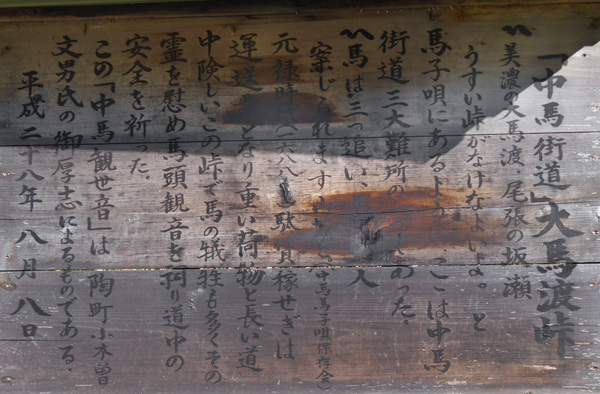 「中馬街道」大馬渡峠
〽美濃の大馬渡・尾張の坂瀬
うすい峠がなけなよいよ。と
馬子唄にあるよう ここは中馬
街道三大難所の であった。
〽馬は三つ追い、 人
案じ れます (中馬馬子唄保存会)
元禄時 (一六八 駄賃稼せぎは
運送 となり重い荷物と長い道
中険しいこの峠で馬の犠牲も多くその
霊を慰め馬頭観音を祠り道中の
安全を祈った。
この「中馬観世音」は陶町小木曽
文男氏の御厚志によるものである。
平成二十八年八月八日